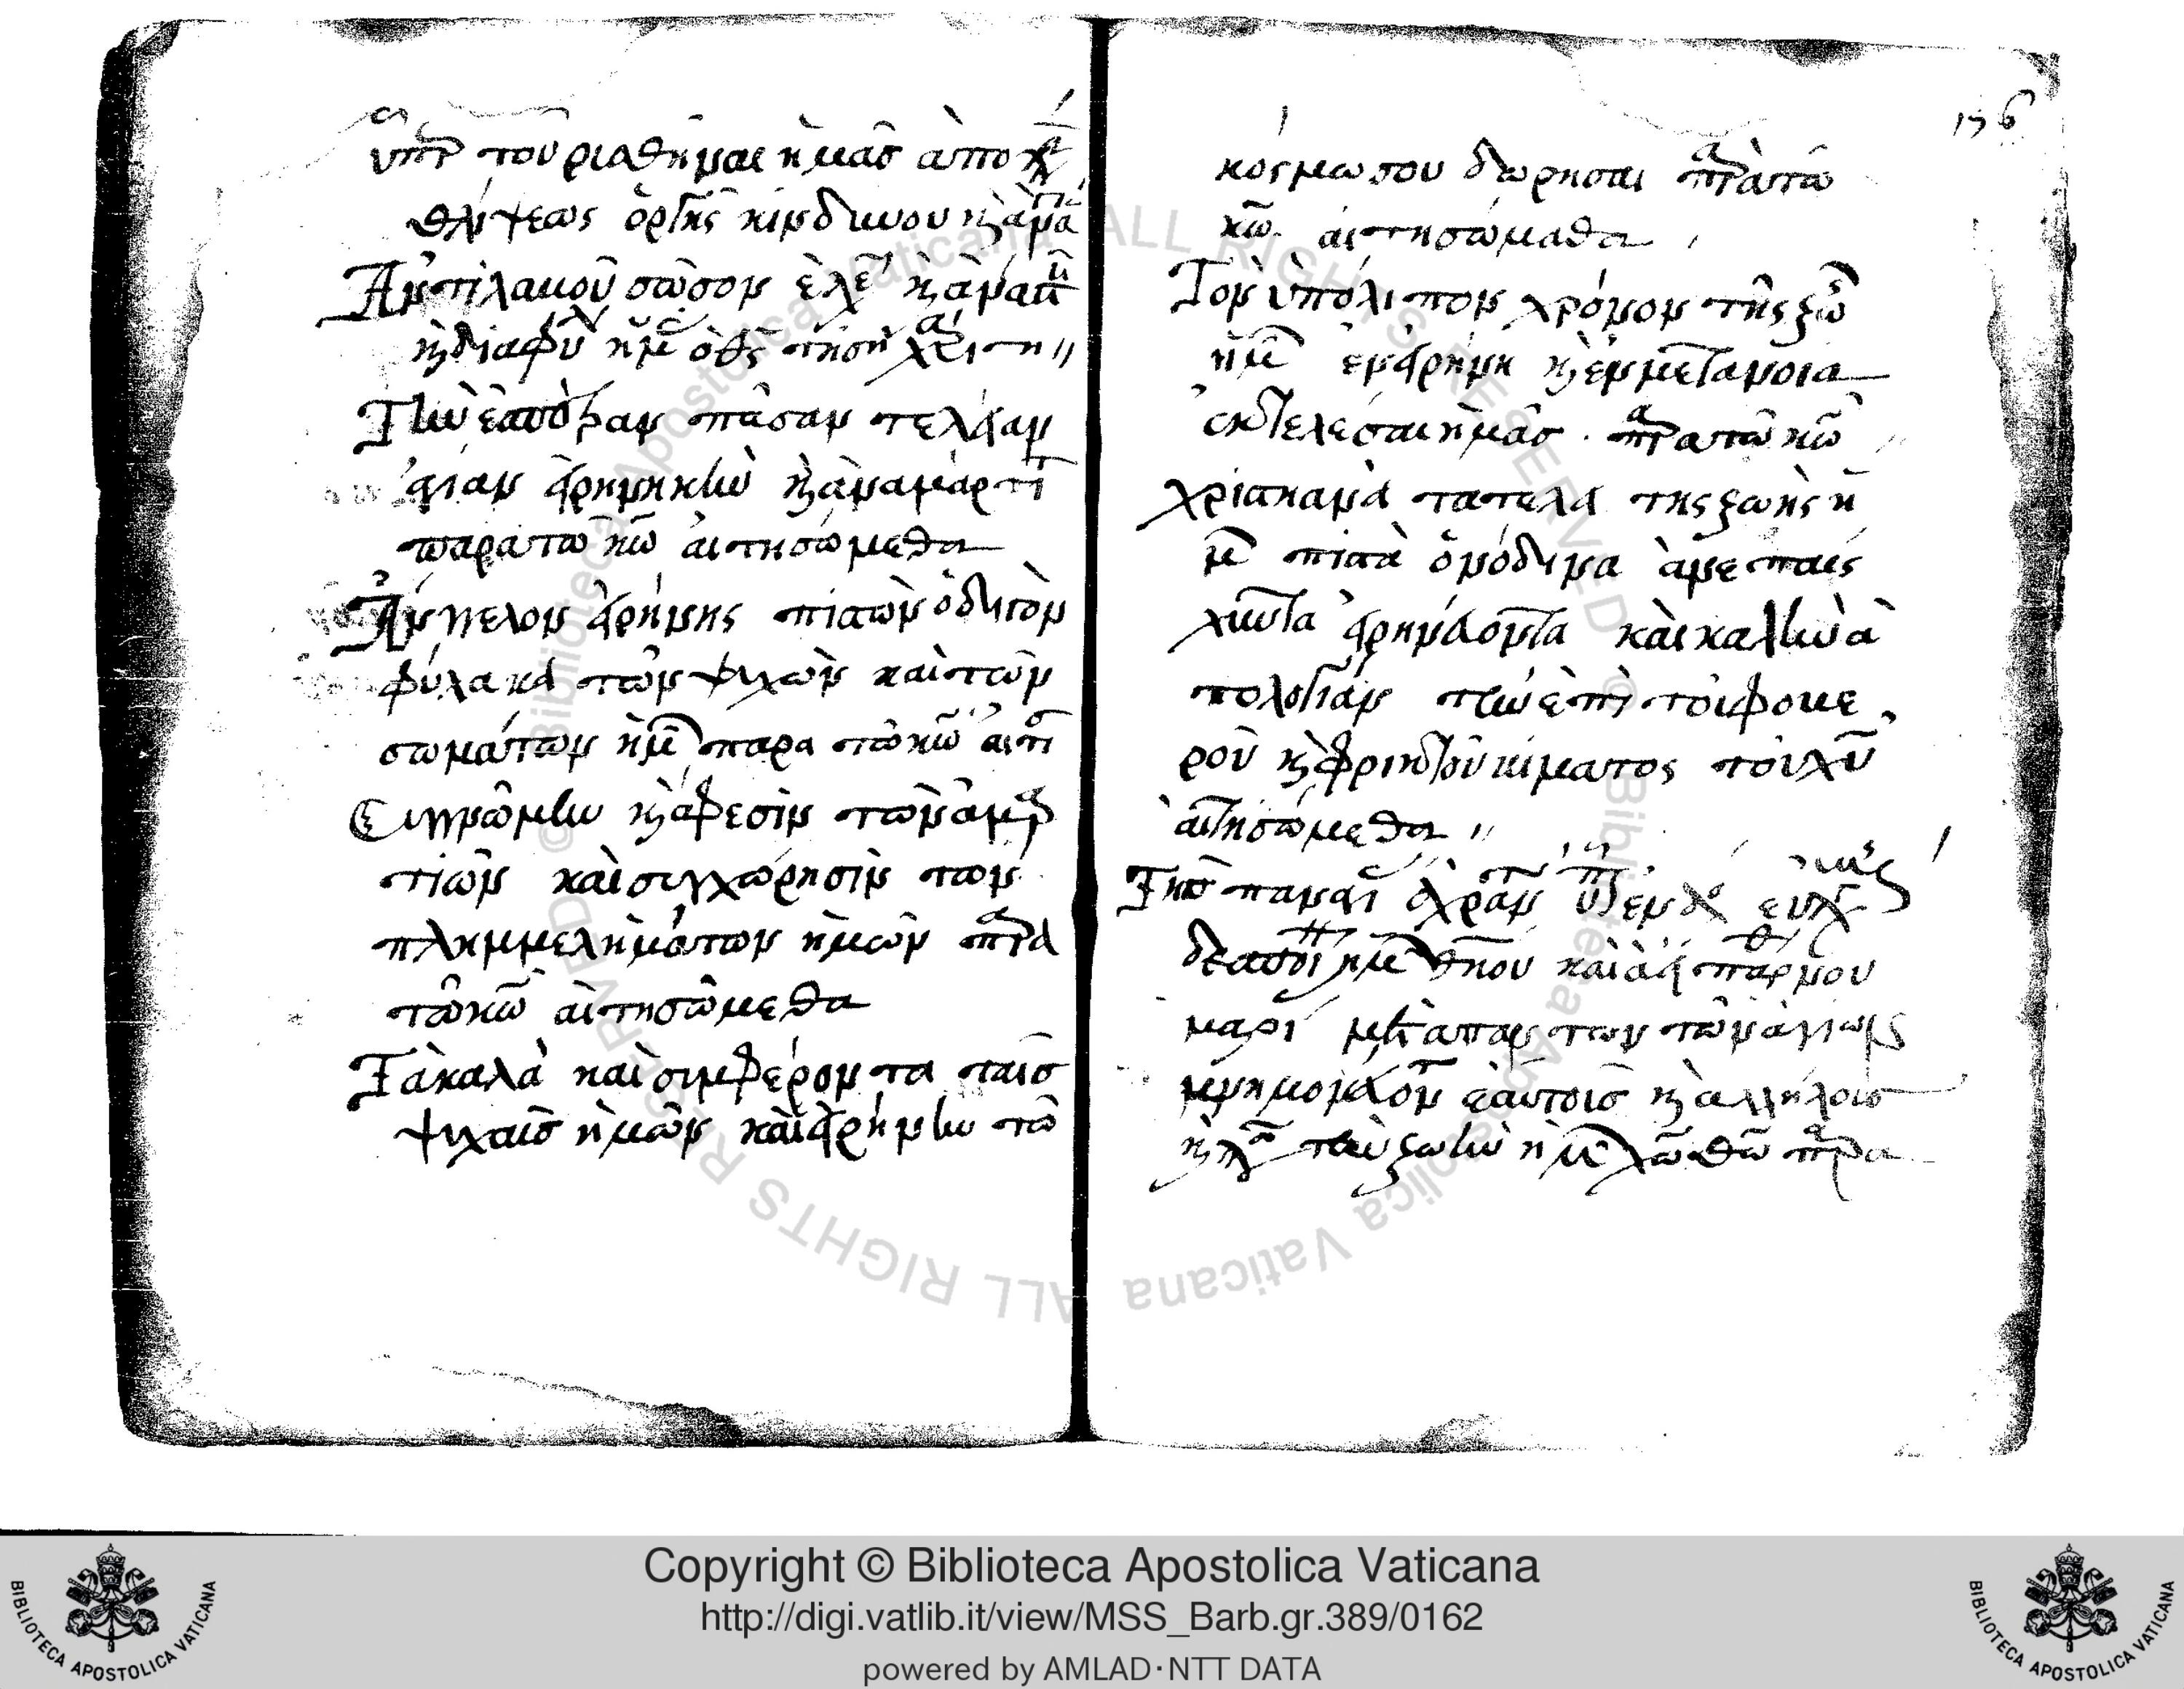 ὑπὲρ τοῦ ρυσθῆναι ἡμᾶς ἀπο π
θλίψεως ὀργῆς κινδύνου κ ἀνά
Ἀντιλαβοῦ σῶσον ἐλέ κ
κ διαφύ ἡμ ὁ θς τῆ σῆ χάριτι
Τὴν ἑσπέραν πᾶσαν τελείαν
ἁγίαν εἰρηνικὴν κ ἀναμάρτ
παρα τῶ κῶ αἰτησώμεθα
Ἄγγελον εἰρήνης πιστὸν ὁδηγὸν
φύλακα τῶν ψυχῶν καὶ τῶν
σωμάτων ἡμ παρα τῶ κῶ αἰτ
Συγγνώμην κ ἄφεσιν τῶν ἁμρ
τιῶν καὶ συγχώρησιν τῶν
πλημμελημάτων ἡμῶν πρα
τῶ κῶ αἰτησώμεθα
Τὰ καλὰ καὶ συμφέροντα ταῖς
ψυχαῖς ἡμῶν καὶ εἰρήνην τῶ
176
κόσμω σου δώρησαι πρα τῶ
κῶ αἰτησώμεθα
Τὸν ὑπόλιπον χρόνον τῆς ζω
ἡμ ἐν εἰρήνη κ ἐν μετανοία
ἐκτελέσαι ἡμᾶς πρα τῶ κῶ
χριστιανὰ τὰ τέλη τῆς ζωῆς ἡ
μ ἀνώδυνα ἀνεπαίς
χυντα εἰρηνικὰ καὶ καλὴν ἀ
πολογίαν τὴν ἐπὶ τοῦ φοβε
ροῦ κ φρικτοῦ βήματος τοῦ χυ
αἰτησώμεθα
Τῆς παναγ ἀχράν ὑπ ἐνδ εὐλ
δεσποί ἡμ θκου καὶ ἀειπαρθένου
μαρί μετὰ πάντων τῶν ἁγίων
μνημονεύ ἑαυτοὺς κ ἀλλήλους
κ πᾶ τὴν ζωὴν ἡμ χω θω πρα
Copyright © Biblioteca Apostolica Vaticana
http://digi.vatlib.it/view/MSS_Barb.gr.389/0162
powered by AMLAD·NTT DATA
BIBLIOTECA APOSTOLICA VATICANA
BIBLIOTECA APOSTOLICA VATICANA